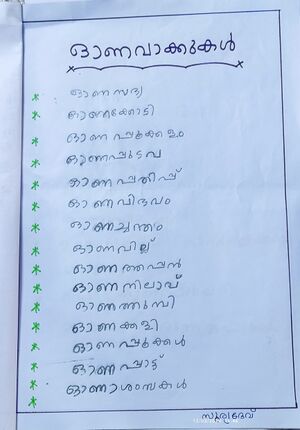 ഓണവാക്കുകൾ
ഓണസദ്യ
ഓണക്കോടി
ഓണപ്പൂക്കളം
ഓണപ്പുടവ
ഓണപ്പതിപ്പ്
ഓണവിഭവം
ഓണച്ചന്തം
ഓണവില്ല്
ഓണത്തപ്പൻ
ഓണനിലാവ്
ഓണത്തുമ്പി
ഓണക്കളി
ഓണപ്പൂക്കൾ
ഓണപ്പാട്ട്
ഓണാശംസകൾ
സൂര്യദേവ്